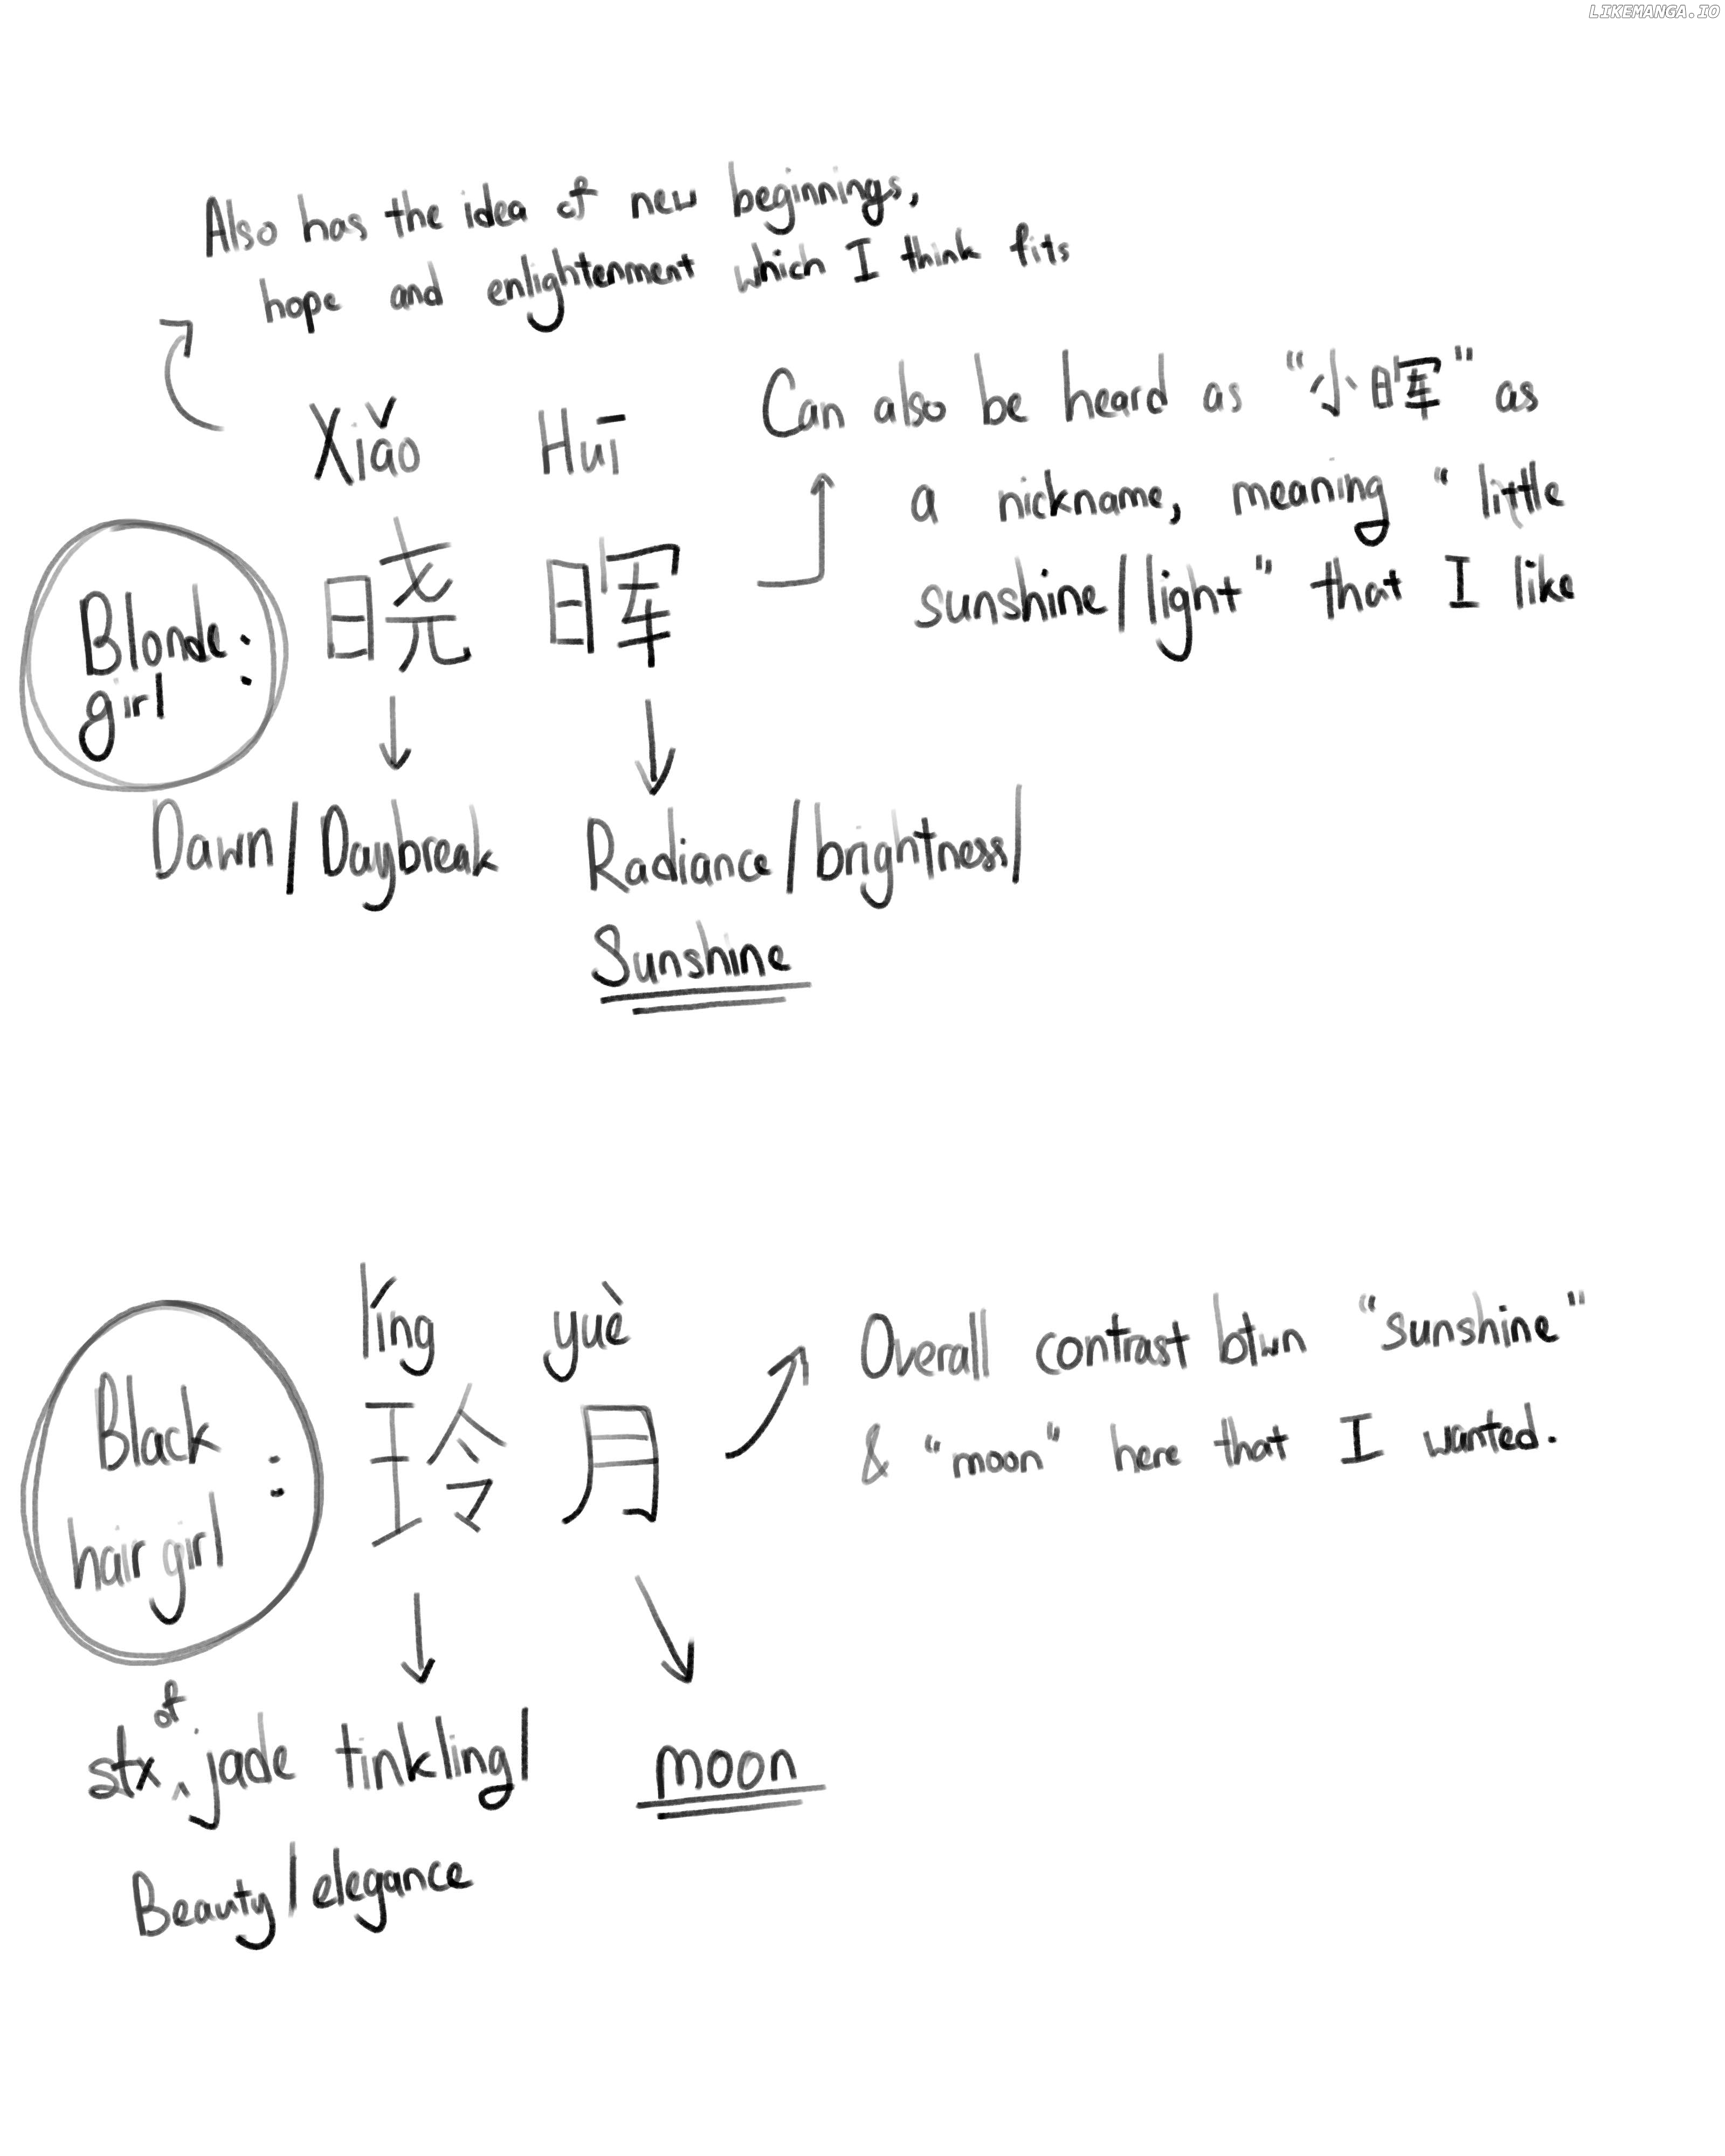 LIKEMANGA.IO
Also has the idea of new beginnings,
hope and enlightenment which I think fits
Xiǎo Huī
Can also be heard as "小晖" as
a nickname, meaning "little
sunshine/light" that I like
Blonde girl: 晓晖
Dawn/Daybreak
Radiance/brightness/
Sunshine
líng yuè
Black hair girl: 玲月
Overall contrast btwn "sunshine"
& "moon" here that I wanted.
stx of jade tinkling/
Beauty/elegance
moon